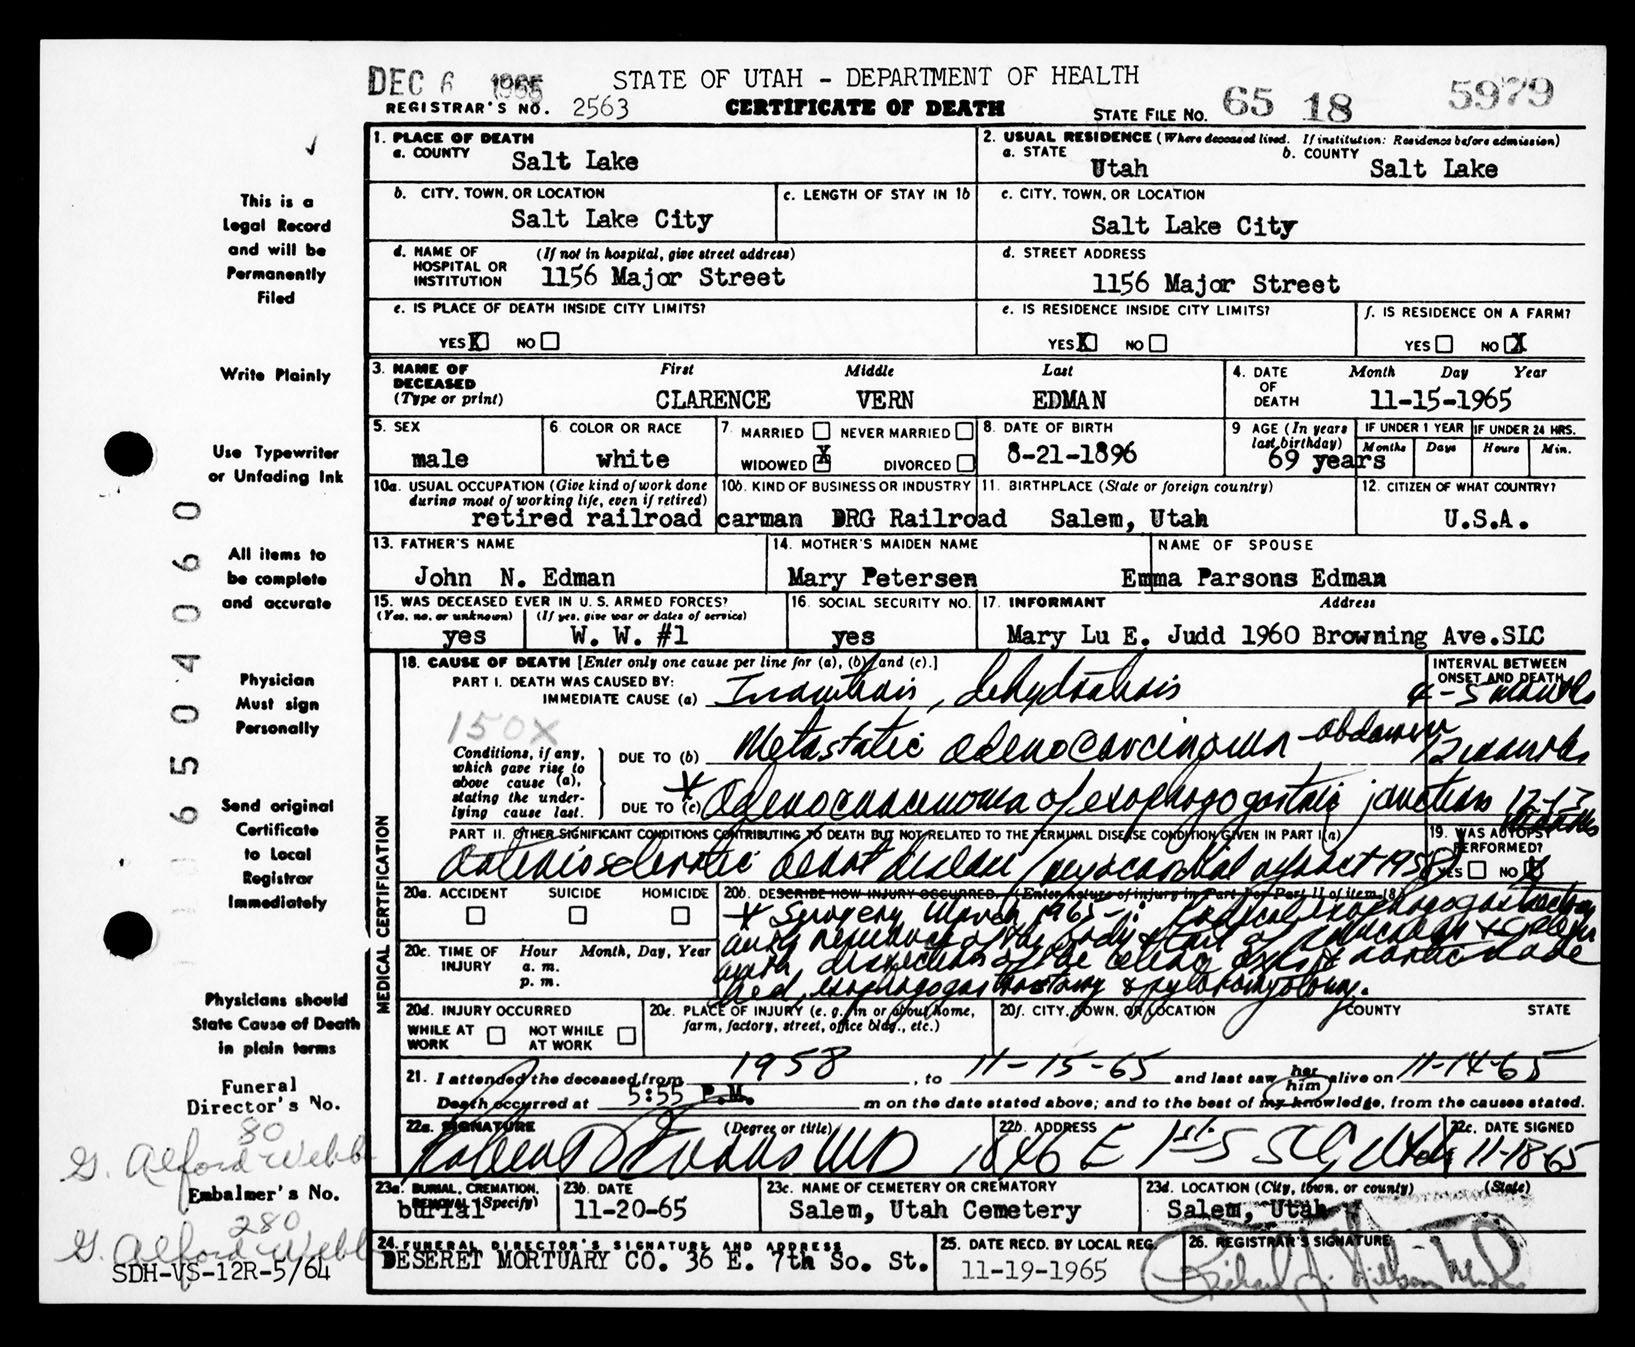 DEC 6 1965 STATE OF UTAH - DEPARTMENT OF HEALTH
REGISTRAR'S NO. 2563 CERTIFICATE OF DEATH STATE FILE NO. 65 18 5979
This is a
Legal Record
and will be
Permanently
Filed
Write Plainly
Use Typewriter
or Unfading Ink
All items to
be complete
and accurate
Physician
Must sign
Personally
Send original
Certificate
to Local
Registrar
Immediately
Physicians should
State Cause of Death
in plain terms
Funeral
Director's No.
80
G. Alford Webb
Embalmer's No.
280
G. Alford Webb
SDH-VS-12R-5/64
0 6 5 0 4 0 6 0
1. PLACE OF DEATH
a. COUNTY Salt Lake
2. USUAL RESIDENCE (Where deceased lived. If institution: Residence before admission)
a. STATE Utah b. COUNTY Salt Lake
b. CITY, TOWN, OR LOCATION Salt Lake City
c. LENGTH OF STAY IN 1b
c. CITY, TOWN, OR LOCATION Salt Lake City
d. NAME OF HOSPITAL OR INSTITUTION (If not in hospital, give street address)
1156 Major Street
d. STREET ADDRESS
1156 Major Street
e. IS PLACE OF DEATH INSIDE CITY LIMITS?
YES X NO
e. IS RESIDENCE INSIDE CITY LIMITS?
YES X NO
f. IS RESIDENCE ON A FARM?
YES NO X
3. NAME OF DECEASED (Type or print) First Middle Last
CLARENCE VERN EDMAN
4. DATE OF DEATH Month Day Year
11-15-1965
5. SEX male
6. COLOR OR RACE white
7. MARRIED NEVER MARRIED
WIDOWED X DIVORCED
8. DATE OF BIRTH 8-21-1896
9. AGE (In years last birthday) 69 years
IF UNDER 1 YEAR Months Days
IF UNDER 24 HRS. Hours Min.
10a. USUAL OCCUPATION (Give kind of work done during most of working life, even if retired)
10b. KIND OF BUSINESS OR INDUSTRY
retired railroad carman DRG Railroad
11. BIRTHPLACE (State or foreign country)
Salem, Utah
12. CITIZEN OF WHAT COUNTRY?
U.S.A.
13. FATHER'S NAME
John N. Edman
14. MOTHER'S MAIDEN NAME
Mary Petersen
NAME OF SPOUSE
Emma Parsons Edman
15. WAS DECEASED EVER IN U.S. ARMED FORCES?
(Yes, no, or unknown) (If yes, give war or dates of service)
yes W. W. #1
16. SOCIAL SECURITY NO.
yes
17. INFORMANT Address
Mary Lu E. Judd 1960 Browning Ave.SLC
MEDICAL CERTIFICATION
18. CAUSE OF DEATH [Enter only one cause per line for (a), (b) and (c).]
INTERVAL BETWEEN ONSET AND DEATH
PART I. DEATH WAS CAUSED BY:
IMMEDIATE CAUSE (a) Inanition, dehydration 4-5 months
150X
Conditions, if any, which gave rise to above cause (a), stating the underlying cause last.
DUE TO (b) Metastatic adenocarcinoma - abdomen 12 months
DUE TO (c) * Adenocarcinoma of esophagogastric junction 12-13 months
PART II. OTHER SIGNIFICANT CONDITIONS CONTRIBUTING TO DEATH BUT NOT RELATED TO THE TERMINAL DISEASE CONDITION GIVEN IN PART I(a)
Arteriosclerotic heart disease / myocardial infarct 1958
19. WAS AUTOPSY PERFORMED?
YES NO X
20a. ACCIDENT SUICIDE HOMICIDE
20b. DESCRIBE HOW INJURY OCCURRED. (Enter nature of injury in Part I or Part II of item 18.)
* Surgery March 1965 -: Radical esophagogastrectomy
with removal of the body & tail of pancreas & spleen
with dissection of the celiac axis & aortic node
bed, esophagogastrostomy & pyloromyotomy.
20c. TIME OF INJURY Hour Month, Day, Year
a. m.
p. m.
20d. INJURY OCCURRED
WHILE AT WORK NOT WHILE AT WORK
20e. PLACE OF INJURY (e. g., in or about home, farm, factory, street, office bldg., etc.)
20f. CITY, TOWN, OR LOCATION COUNTY STATE
21. I attended the deceased from 1958, to 11-15-65 and last saw her him alive on 11-14-65
Death occurred at 5:55 P.M. m on the date stated above; and to the best of my knowledge, from the causes stated.
22a. SIGNATURE (Degree or title)
Evans MD
22b. ADDRESS
1846 E 1st S SLC Utah
22c. DATE SIGNED
11-18-65
23a. BURIAL, CREMATION, REMOVAL (Specify)
burial
23b. DATE
11-20-65
23c. NAME OF CEMETERY OR CREMATORY
Salem, Utah Cemetery
23d. LOCATION (City, town, or county) (State)
Salem, Utah
24. FUNERAL DIRECTOR'S SIGNATURE AND ADDRESS
DESERET MORTUARY CO. 36 E. 7th So. St.
25. DATE RECD. BY LOCAL REG.
11-19-1965
26. REGISTRAR'S SIGNATURE